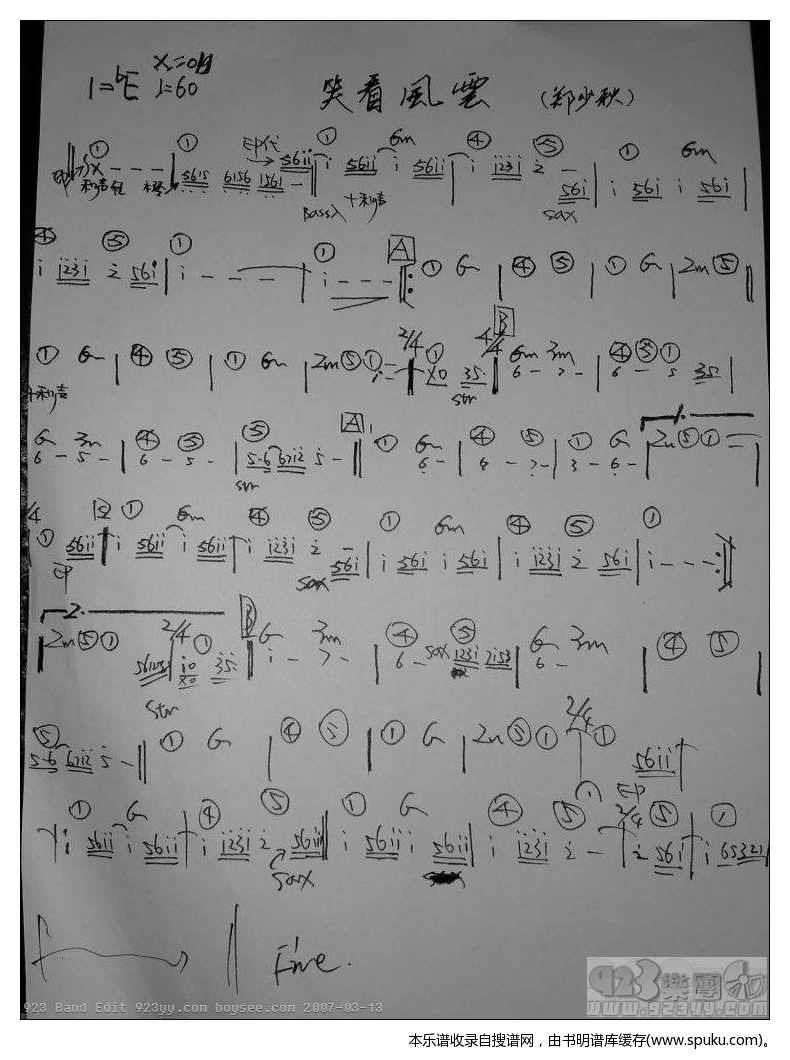 1=bE ♩=60
笑看風雲 (郑少秋)
① ① ① 6m ④ ⑤ ① 6m
X - - - 5615 6156 1561 - 56ii i 56ii i 56ii i i23i 2 - 56i i 56i i 56i
Bass入 +和声 sax
④ ⑤ ① ① A ① G ④ ⑤ ① G 2m⑤
i i23i 2 56i i - - - i - - -
2/4 4/4 B
① 6m ④ ⑤ ① 6m 2m⑤① ① 6m 3m ④⑤①
+和声 X0 35 6 - 7 - 6 - 5 35
str
G 3m ④ ⑤ ⑤ A ① 6m ④ ⑤ ① G 1. 2m⑤①
6 - 5 - 6 - 5 - 5·6 6712 5 - 6 - 6 - 7 - 3 - 6 -
str
① B ① 6m ④ ⑤ ① 6m ④ ⑤ ①
56ii i 56ii i 56ii i i23i 2 - 56i i 56i i 56i i i23i 2 56i i - - -
EP sax
2.
2m⑤① 2/4 ① B G 3m ④ ⑤ G 3m ④ ⑤
i0 35 i - 7 - 6 - sax i23i 2153 6 -
X0
Str
⑤ ① G ④ ⑤ ① G 2m⑤① 2/4 ①
5·6 6712 5 - 56ii
EP
① G ④ ⑤ ① G ④ ⑤ 2/4 ⑤ ①
i 56ii i 56ii i i23i 2 56ii i 56ii i 56ii i i23i 2 - 2 56i i 65321
sax
Fine.
923 Band Edit 923yy.com boysee.com 2007-03-13
923樂團
www.923yy.com
本乐谱收录自搜谱网，由书明谱库缓存(www.spuku.com)。